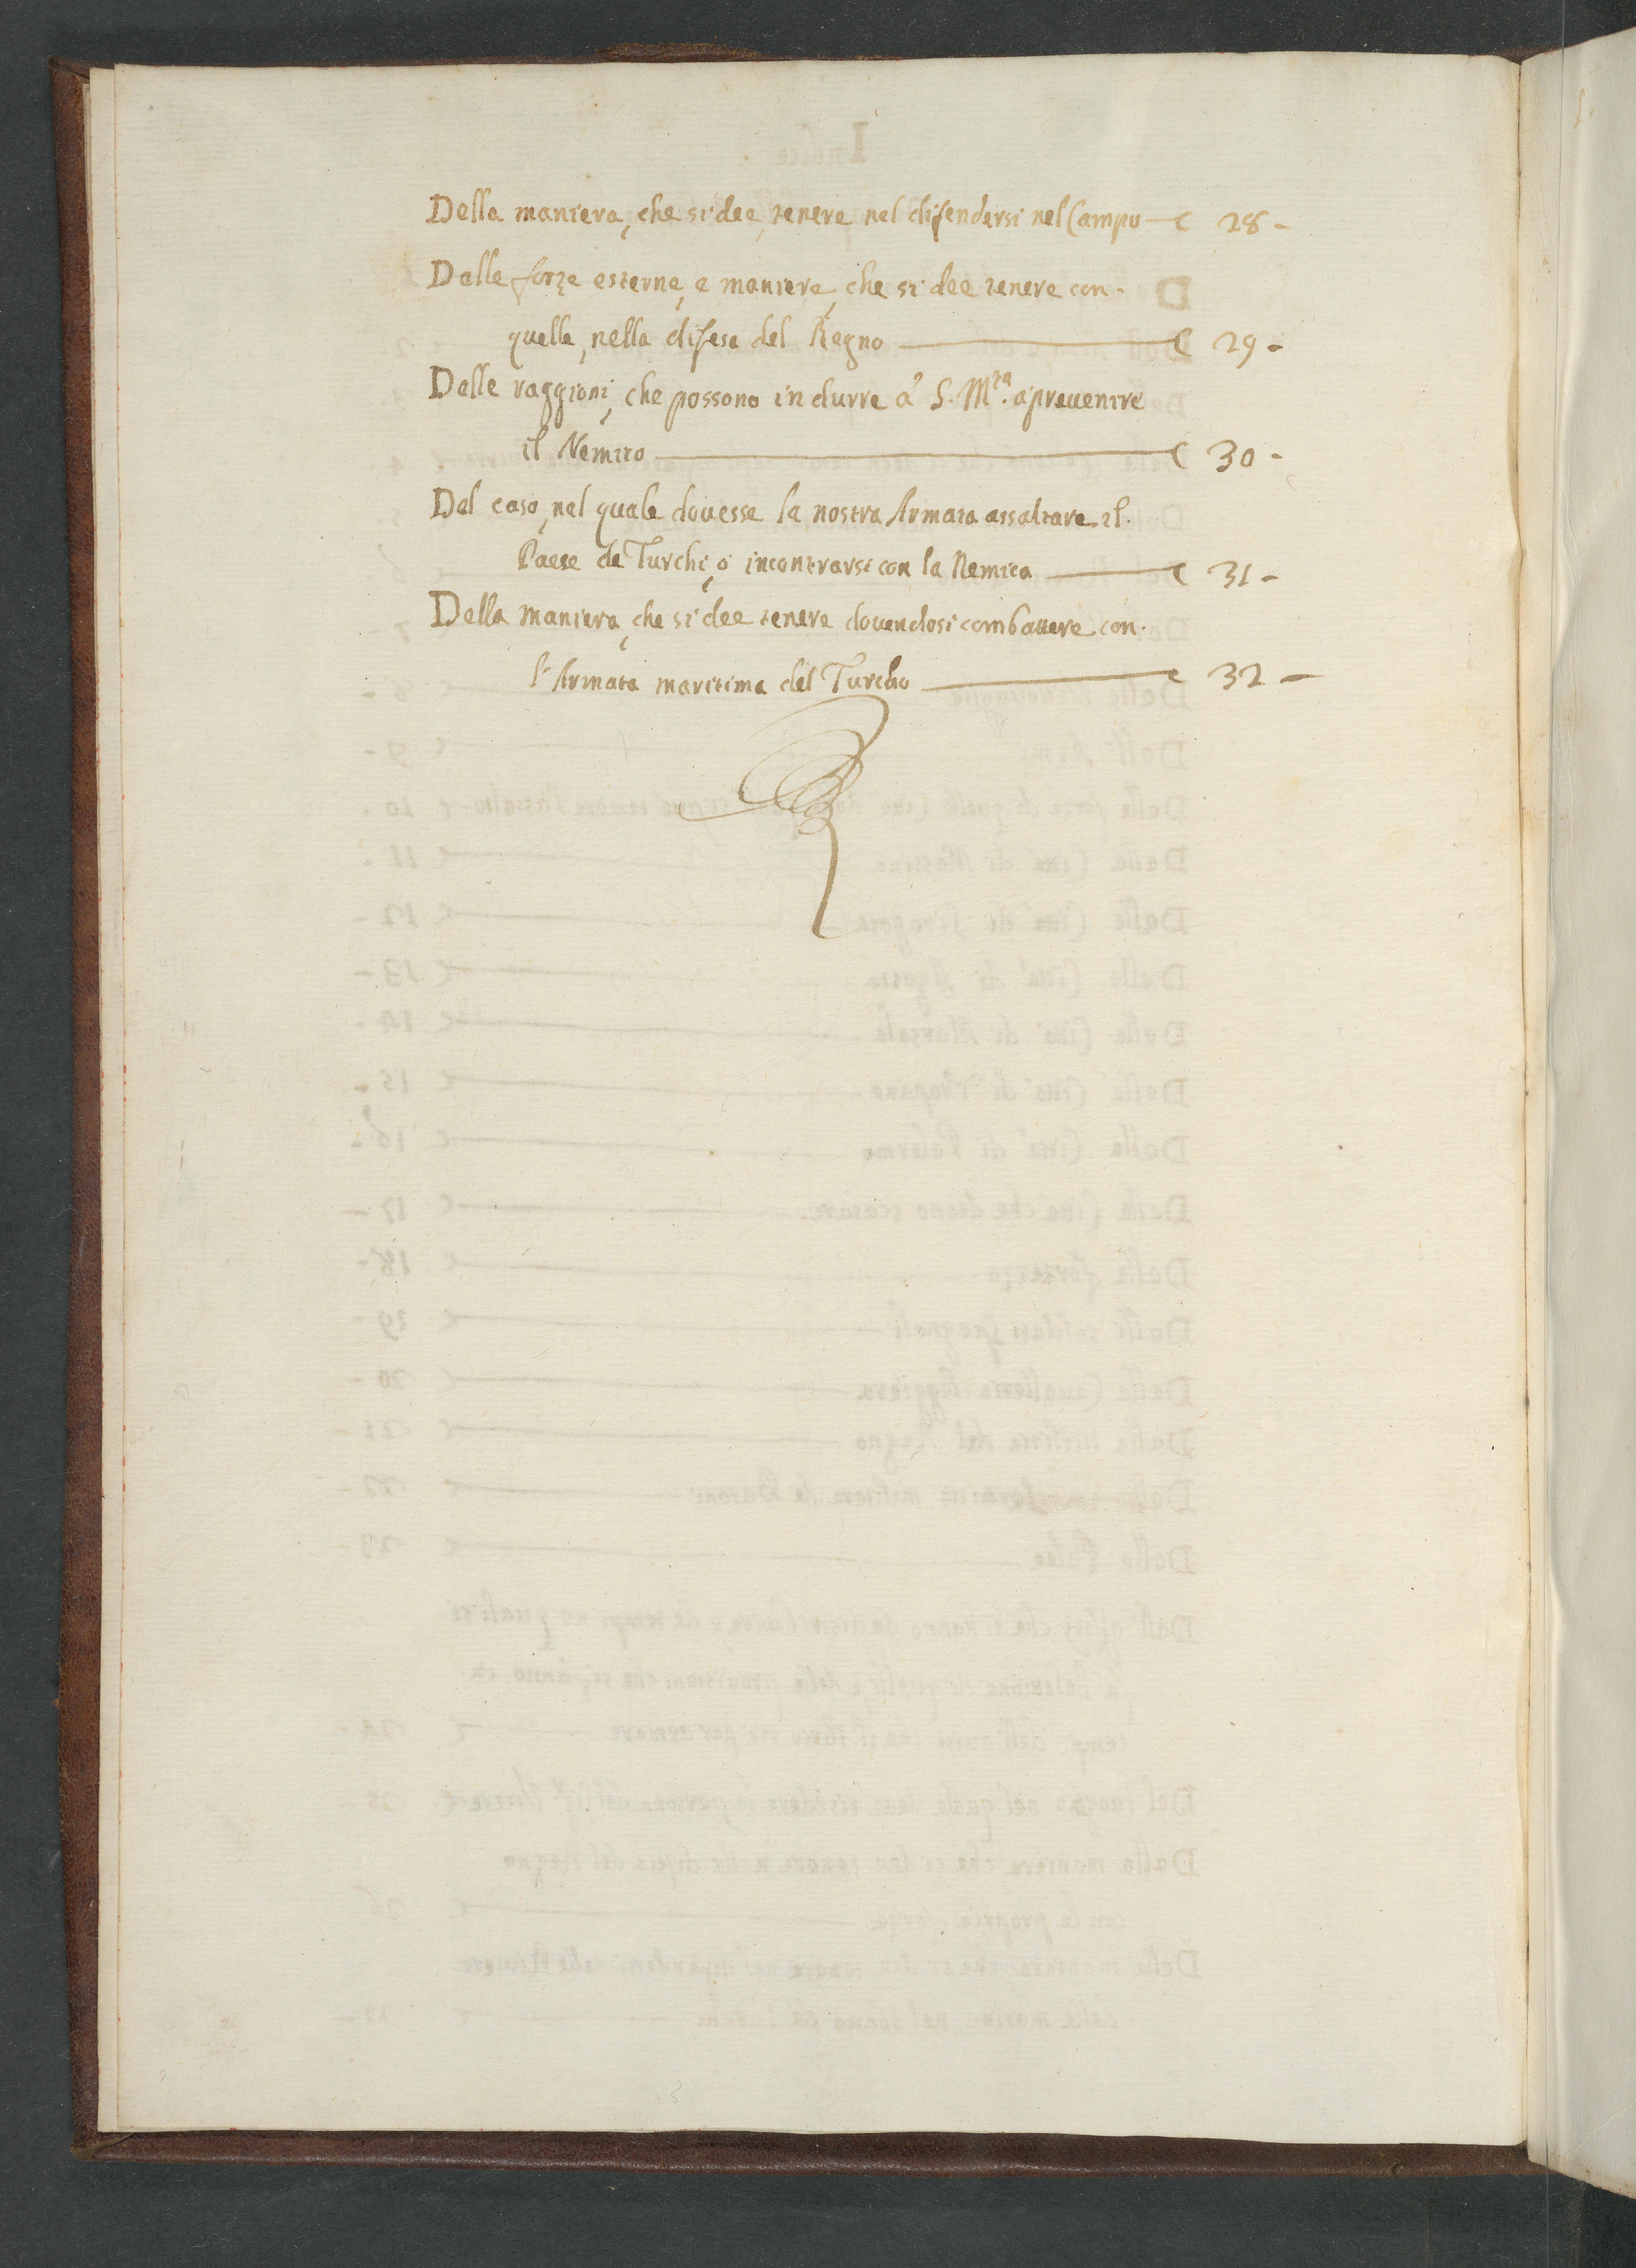 Della maniera, che si dee, tenere nel difendersi nel Campo — c 28 -
Delle forze esterne, e maniere, che si dee tenere con.
quelle, nella difesa del Regno — c 29 -
Delle raggioni, che possono indurre à S. M.tà a preuenire
il Nemico — c 30 -
Del caso, nel quale douesse la nostra Armata assaltare il.
Paese de Turchi, ò incontrarsi con la Nemica — c 31 -
Della maniera, che si dee tenere douendosi combattere con.
l'Armata maritima del Turcho — c 32 -